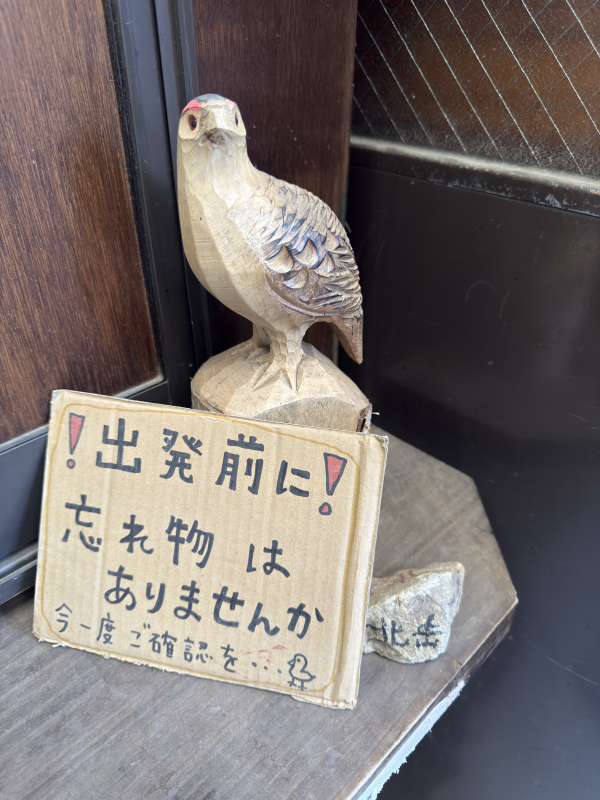 ！出発前に！
忘れ物は
ありませんか
今一度ご確認を...
北岳